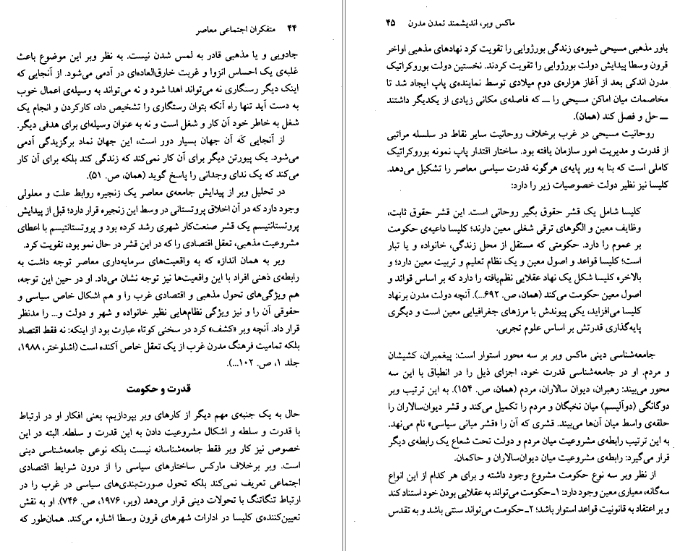 ۴۴ متفکران اجتماعی معاصر
جادویی و یا مذهبی قادر به لمس شدن نیست. به نظر وبر این موضوع باعث
غلبه‌ی یک احساس انزوا و غربت خارق‌العاده‌ای در آدمی می‌شود. از آنجایی که
اینک دیگر رستگاری نه می‌تواند اهدا شود و نه می‌تواند به وسیله‌ی اعمال خوب
به دست آید تنها راه آنکه بتوان رستگاری را تشخیص داد، کارکردن و انجام یک
شغل به خاطر خود آن کار و شغل است و نه به عنوان وسیله‌ای برای هدفی دیگر.
از آنجایی که آن جهان بسیار دور است، این جهان نماد برگزیدگی آدمی
می‌شود. یک پیورتن دیگر برای آن کار نمی‌کند که زندگی کند بلکه برای آن کار
می‌کند که یک ندای وجدانی را پاسخ گوید (همان، ص. ۵۱).
در تحلیل وبر از پیدایش جامعه‌ی معاصر یک زنجیره روابط علت و معلولی
وجود دارد که در آن اخلاق پروتستانی در وسط این زنجیره قرار دارد؛ قبل از پیدایش
پروتستانتیسم یک قشر صنعت‌کار شهری رشد کرده بود و پروتستانتیسم با اعطای
مشروعیت مذهبی، تعقل اقتصادی را که در این قشر در حال نمو بود، تقویت کرد.
وبر به همان اندازه که به واقعیت‌های سرمایه‌داری معاصر توجه داشت به
رابطه‌ی ذهنی افراد با این واقعیت‌ها نیز توجه نشان می‌داد. او در حین این توجه،
هم ویژگی‌های تحول مذهبی و اقتصادی غرب را و هم اشکال خاص سیاسی و
حقوقی آن را و نیز ویژگی نظام‌هایی نظیر خانواده و شهر و دولت و... را مدنظر
قرار داد. آنچه وبر «کشف» کرد در سخنی کوتاه عبارت بود از اینکه: نه فقط اقتصاد
بلکه تمامیت فرهنگ مدرن غرب از یک تعقل خاص آکنده است (اشلوختر، ۱۹۸۸،
جلد ۱، ص. ۱۰۲...).
قدرت و حکومت
حال به یک جنبه‌ی مهم دیگر از کارهای وبر بپردازیم، یعنی افکار او در ارتباط
با قدرت و سلطه و اشکال مشروعیت دادن به این قدرت و سلطه. البته در این
خصوص نیز کار وبر فقط جامعه‌شناسانه نیست بلکه نوعی جامعه‌شناسی دینی
است. وبر برخلاف مارکس ساختارهای سیاسی را از درون شرایط اقتصادی
اجتماعی تعریف نمی‌کند بلکه تحول صورت‌بندی‌های سیاسی در غرب را در
ارتباط تنگاتنگ با تحولات دینی قرار می‌دهد (وبر، ۱۹۷۶، ص. ۷۴۶). او به نقش
تعیین‌کننده‌ی کلیسا در ادارات شهرهای قرون وسطا اشاره می‌کند. همان‌طور که
ماکس وبر، اندیشمند تمدن مدرن ۴۵
باور مذهبی مسیحی شیوه‌ی زندگی بورژوایی را تقویت کرد نهادهای مذهبی اواخر
قرون وسطا پیدایش دولت بورژوایی را تقویت کردند. نخستین دولت بوروکراتیک
مدرن اندکی بعد از آغاز هزاره‌ی دوم میلادی توسط نماینده‌ی پاپ ایجاد شد تا
مخاصمات میان اماکن مسیحی را ــ که فاصله‌ی مکانی زیادی از یکدیگر داشتند
ــ حل و فصل کند (همان).
روحانیت مسیحی در غرب برخلاف روحانیت سایر نقاط در سلسله مراتبی
از قدرت و مدیریت امور سازمان یافته بود. ساختار اقتدار پاپ نمونه بوروکراتیک
کاملی است که بنا به وبر پایه‌ی هرگونه قدرت سیاسی معاصر را تشکیل می‌دهد.
کلیسا نیز نظیر دولت خصوصیات زیر را دارد:
کلیسا شامل یک قشر حقوق بگیر روحانی است. این قشر حقوق ثابت،
وظایف معین و الگوهای ترقی شغلی معین دارند؛ کلیسا داعیه‌ی حکومت
بر عموم را دارد. حکومتی که مستقل از محل زندگی، خانواده و یا تبار
است؛ کلیسا قواعد و اصول معین و یک نظام تعلیم و تربیت معین دارد؛ و
بالاخره کلیسا شکل یک نهاد عقلایی نظم‌یافته را دارد که بر اساس قوائد و
اصول معین حکومت می‌کند (همان، ص. ۶۹۲...). آنچه دولت مدرن بر نهاد
کلیسا می‌افزاید، یکی پیوندش با مرزهای جغرافیایی معین است و دیگری
پایه‌گذاری قدرتش بر اساس علوم تجربی.
جامعه‌شناسی دینی ماکس وبر بر سه محور استوار است: پیغمبران، کشیشان
و مردم. او در جامعه‌شناسی قدرت خود، اجزای ذیل را در انطباق با این سه
محور می‌بیند: رهبران، دیوان سالاران، مردم (همان، ص. ۱۵۴). به این ترتیب وبر
دوگانگی (دوآلیسم) میان نخبگان و مردم را تکمیل می‌کند و قشر دیوان‌سالاران را
حلقه‌ی واسط میان آن‌ها می‌بیند. قشری که آن را «قشر میانی سیاسی» نام می‌نهد.
به این ترتیب رابطه‌ی مشروعیت میان مردم و دولت تحت شعاع یک رابطه‌ی دیگر
قرار می‌گیرد: رابطه‌ی مشروعیت میان دیوان‌سالاران و حاکمان.
از نظر وبر سه نوع حکومت مشروع وجود داشته و برای هر کدام از این انواع
سه‌گانه، معیاری معین وجود دارد: ۱ــ حکومت می‌تواند به عقلایی بودن خود استناد کند
و بر اعتقاد به قانونیت قواعد استوار باشد؛ ۲ــ حکومت می‌تواند سنتی باشد و به تقدس